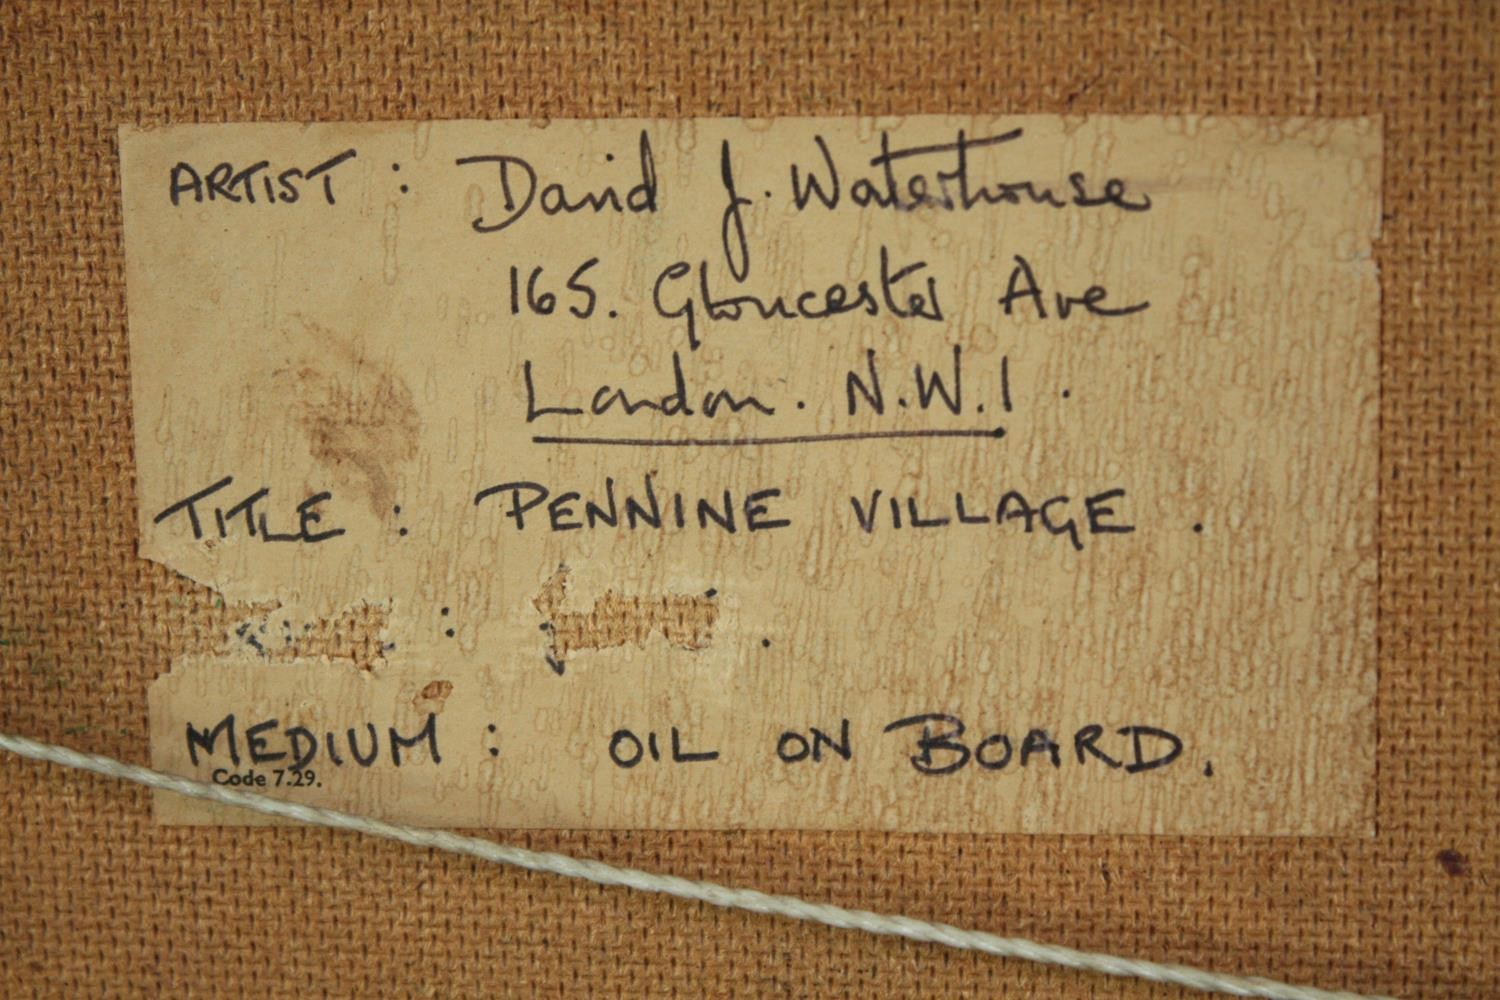 ARTIST : David J. Waterhouse
165. Gloucester Ave
London. N.W.1.
TITLE : PENNINE VILLAGE.
MEDIUM : OIL ON BOARD.
Code 7.29.